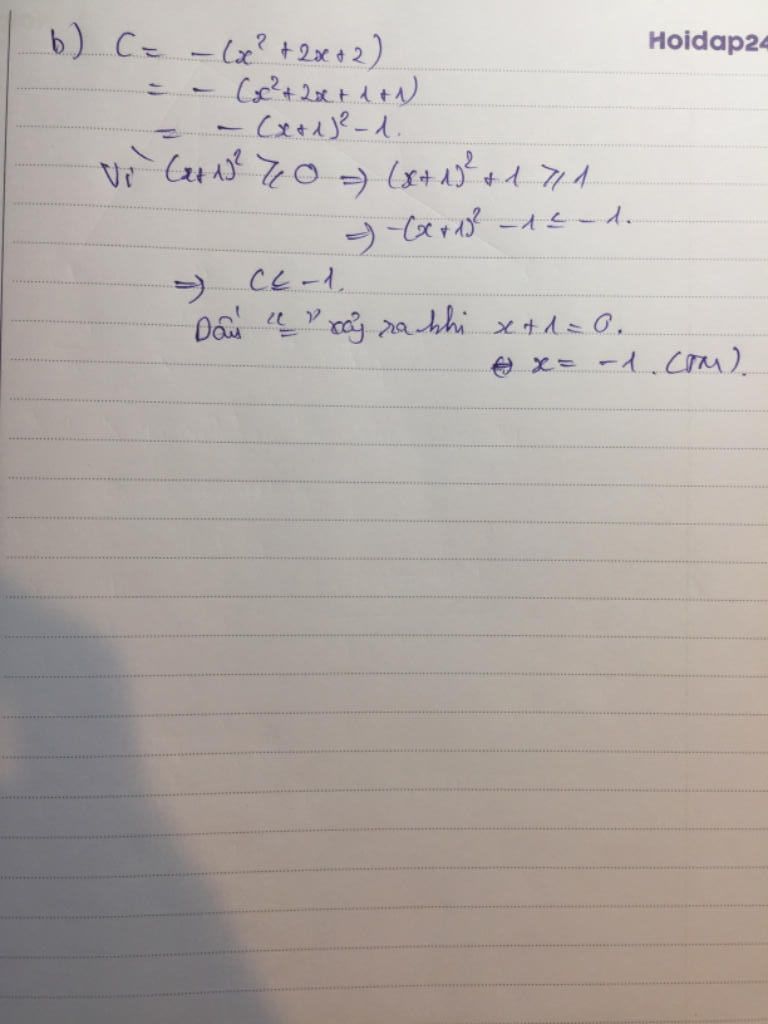 Hoidap24
b) C = -(x² + 2x + 2)
= - (x² + 2x + 1 + 1)
= - (x+1)² - 1.
Vì (x+1)² ⩾ 0 => (x+1)² + 1 ⩾ 1
=> -(x+1)² - 1 ≤ - 1.
=> C ≤ -1.
Dấu "=" xảy ra khi x + 1 = 0.
⇔ x = -1. (TM).